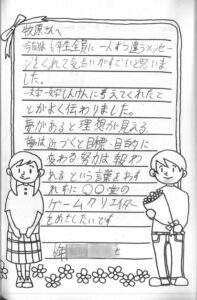 牧原さんへ
今回は6年生全員に一人ずつ違うメッセー
ジをくれて気合いがすごいと思いま
した。
一文字一文字しんけんに考えてくれたこ
とがよく伝わりました。
夢があると理想が見える、
夢は近づくと目標・目的に
変わる 努力は報わ
れるという言葉をわす
れずに〇〇堂の
ゲームクリエイター
をめざしたいです
年